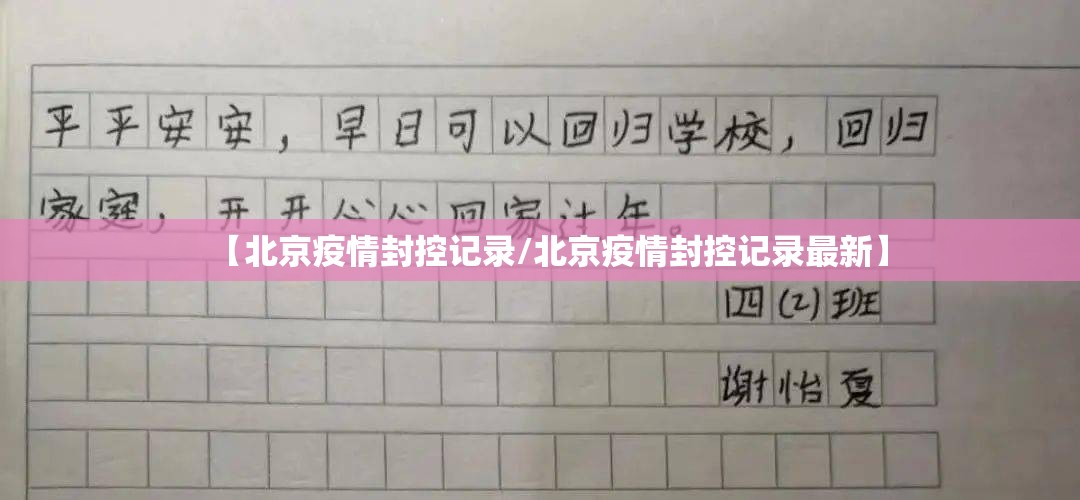 平平安安，早日可以回归学校，回归
家庭，开开心心回家过年。
【北京疫情封控记录/北京疫情封控记录最新】
四(2)班
谢怡夏